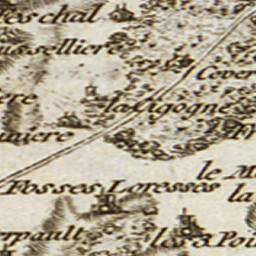 eschal
usselliere
Cover
ere
la Cigogne
niere
le M
Fosses Loresses
la
rpault
les 3 Pou